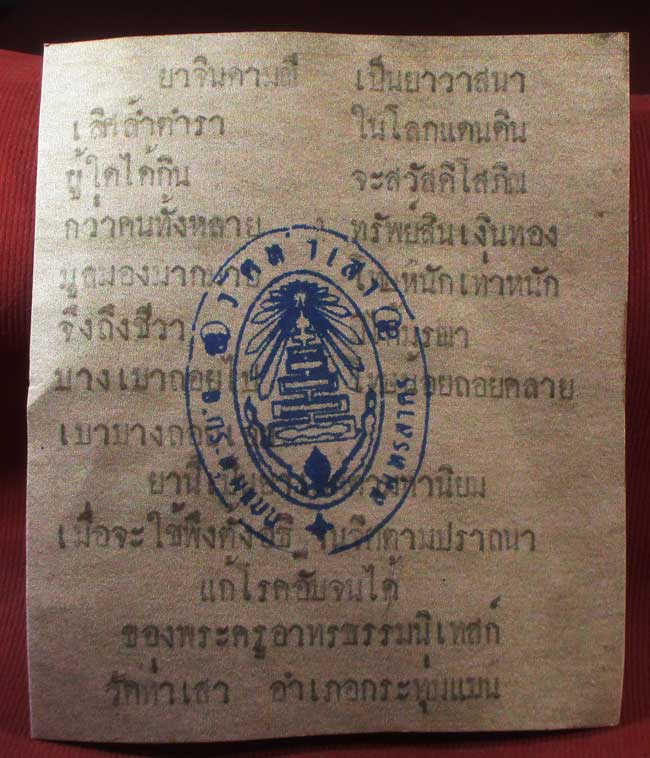 ยาจินดามณี เป็นยาวาสนา
เลิศล้ำตำรา ในโลกแดนดิน
ผู้ใดได้กิน จะสวัสดิโสภิณ
กว่าคนทั้งหลาย ทรัพย์สินเงินทอง
มูลมองมากมาย โทษหนักเท่าหนัก
จึงถึงชีวา
บางเบาถอยไป โทษน้อยถอยคลาย
เบาบาง
ยานี้
เมื่อจะใช้พึงตั้ง นึกตามปราถนา
แก้โรคอับจนได้
ของพระครูอาทรธรรมนิเทสก์
วัดท่าเสา อำเภอกระทุ่มแบน
วัดท่าเสา
อ.กระทุ่มแบน
สมุทรสาคร